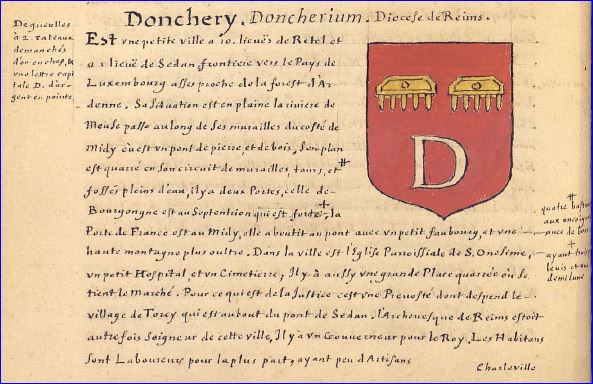 Donchery. Doncherium. Diocese de Reims.
De gueulles
à 2. rateaux
demanchés
d'or en chef, &
vne lettre capi
tale D. d'ar
gent en pointe.
Est vne petite ville a 10. lieuës de Retel et
a 1 lieuë de Sedan frontiere vers le Pays de
Luxembourg asses proche de la forest d'Ar
denne, Sa situation est en plaine la riuiere de
Meuse passe au long de ses murailles du costé de
Midy ou est vn pont de pierre et de bois. Son plan
est quarré en son circuit de murailles, tours, et #
fossés pleins d'eau, il y a deux Portes, celle de
Bourgongne est au Septention qui est forte, + la
Porte de France est au Midy, elle a boutit au pont auec vn petit faubourg, et vne
haute montagne plus oultre. Dans la ville est l'Eglise Parroissiale de S. Onesime,
vn petit Hospital et vn Cimetierre, Il y à aussy vne grande Place quarrée ou se
tient le Marché. Pour ce qui est de la Justice c'est vne Preuosté dont despend le
village de Torcy qui est au bout du pont de Sedan. l'Archeuesque de Reims estoit
autrefois Seigneur de cette ville, Il y à vn Gouuerneur pour le Roy. Les Habitans
sont Laboureurs pour la plus part, ayant peu d'Artisans
D
#
quatre bast
aux encoig
auec de bons
+
ayant
leuis et vne
demi lune
Charleville